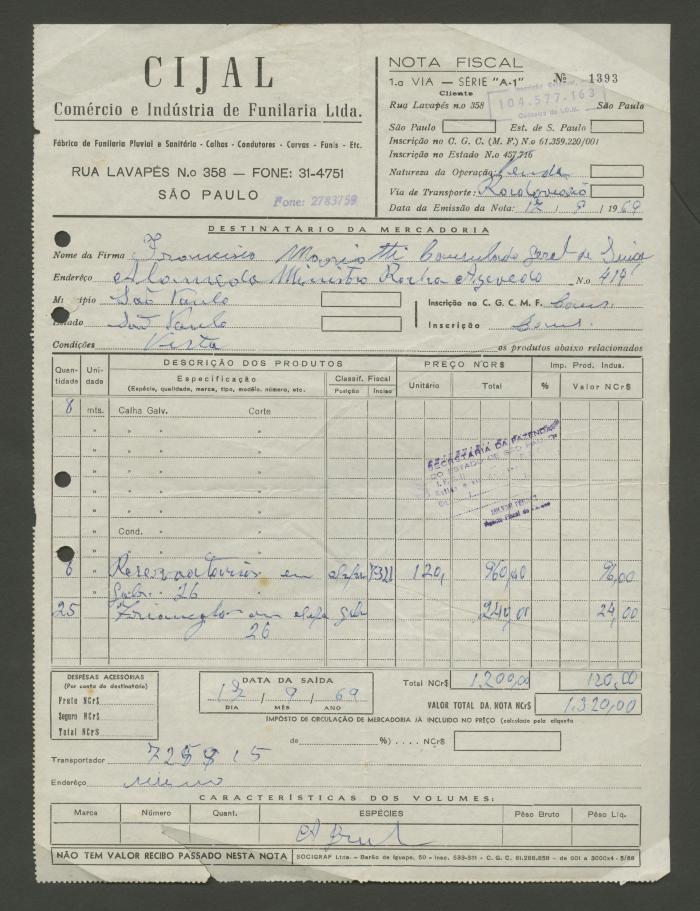 CIJAL
Comércio e Indústria de Funilaria Ltda.
Fábrica de Funilaria Pluvial e Sanitária - Calhas - Condutores - Curvas - Funis - Etc.
RUA LAVAPÉS N.o 358 — FONE: 31-4751
SÃO PAULO
Fone: 2783759
NOTA FISCAL
1.a VIA — SÉRIE "A-1" Nº 1393
Cliente
Rua Lavapés n.o 358 São Paulo
104.577.163
São Paulo Est. de S. Paulo
Inscrição no C. G. C. (M. F.) N.o 61.359.220/001
Inscrição no Estado N.o 457.716
Natureza da Operação: Venda
Via de Transporte: Rodoviário
Data da Emissão da Nota: 12 / 9 / 1969
DESTINATÁRIO DA MERCADORIA
Nome da Firma Francisco Mariotti Consulado Geral de Suiça
Enderêço Alameda Ministro Rocha Azevedo N.o 414
Município São Paulo Inscrição no C. G. C. M. F.
Estado São Paulo Inscrição
Condições Vista os produtos abaixo relacionados
Quantidade Unidade DESCRIÇÃO DOS PRODUTOS PREÇO NCR$ Imp. Prod. Indus.
Especificação Classif. Fiscal Unitário Total % Valor NCR$
(Espécie, qualidade, marca, tipo, modêlo, número, etc. Posição Inciso
8 mts. Calha Galv. Corte
SECRETARIA DA FAZENDA
DO ESTADO DE SÃO PAULO
Cond.
6 Reservatórios em 120, 960,00 96,00
Gabr. 26
25 Triangulo em chapa 240,00 24,00
26
DESPESAS ACESSÓRIAS
(Por conta do destinatário)
Frete NCr$
Seguro NCR$
Total NCR$
DATA DA SAÍDA
12 / 9 / 69
DIA MÊS ANO
Total NCR$ 1.200,00 120,00
VALOR TOTAL DA NOTA NCR$ 1.320,00
IMPÔSTO DE CIRCULAÇÃO DE MERCADORIA JÁ INCLUIDO NO PREÇO (calculado pela alíquota
de %) .... NCR$
Transportador
Enderêço mesmo
CARACTERÍSTICAS DOS VOLUMES:
Marca Número Quant. ESPÉCIES Pêso Bruto Pêso Líq.
NÃO TEM VALOR RECIBO PASSADO NESTA NOTA
SOCIGRAF Ltda. - Barão de Iguape, 50 - Insc. 533-511 - C. G. C. 61.288.858 - de 001 a 3000x4 - 5/68